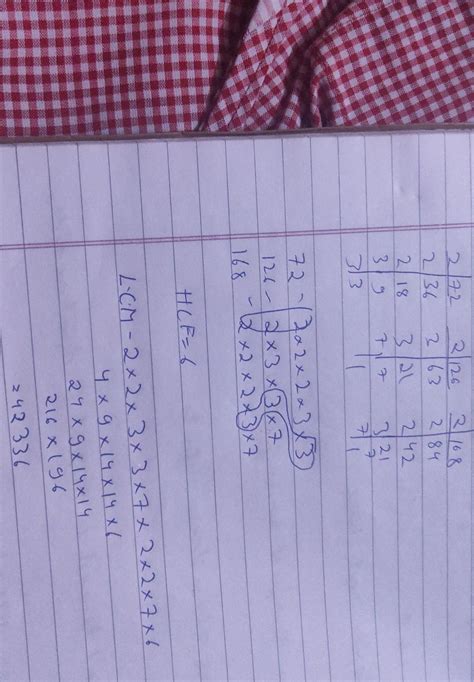 2 72 2 126 2 168
2 36 63 2 84
2 18 3 21 2 42
3 9 7 7 3 21
3 3 1 7 7
1
72 - 2×2×2×3×3
126 - 2×3×3×7
168 - 2×2×2×3×7
HCF=6
LCM - 2×2×3×3×7×2×2×7×6
4×9×14×14×6
24×9×14×14
216×196
=42336